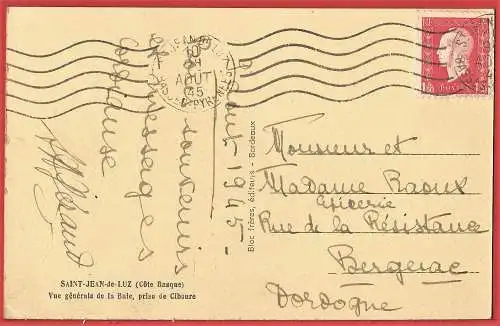 St JEAN DE LUZ
10
AOUT
45
BSES PYRENEES
Août 1945 -
souvenirs
et messages
Bloc frères, éditeurs - Bordeaux
Monsieur et
Madame Raoux
épicerie
Rue de la Résistance
Bergerac
Dordogne
SAINT-JEAN-de-LUZ (Côte Basque)
Vue générale de la Baie, prise de Ciboure